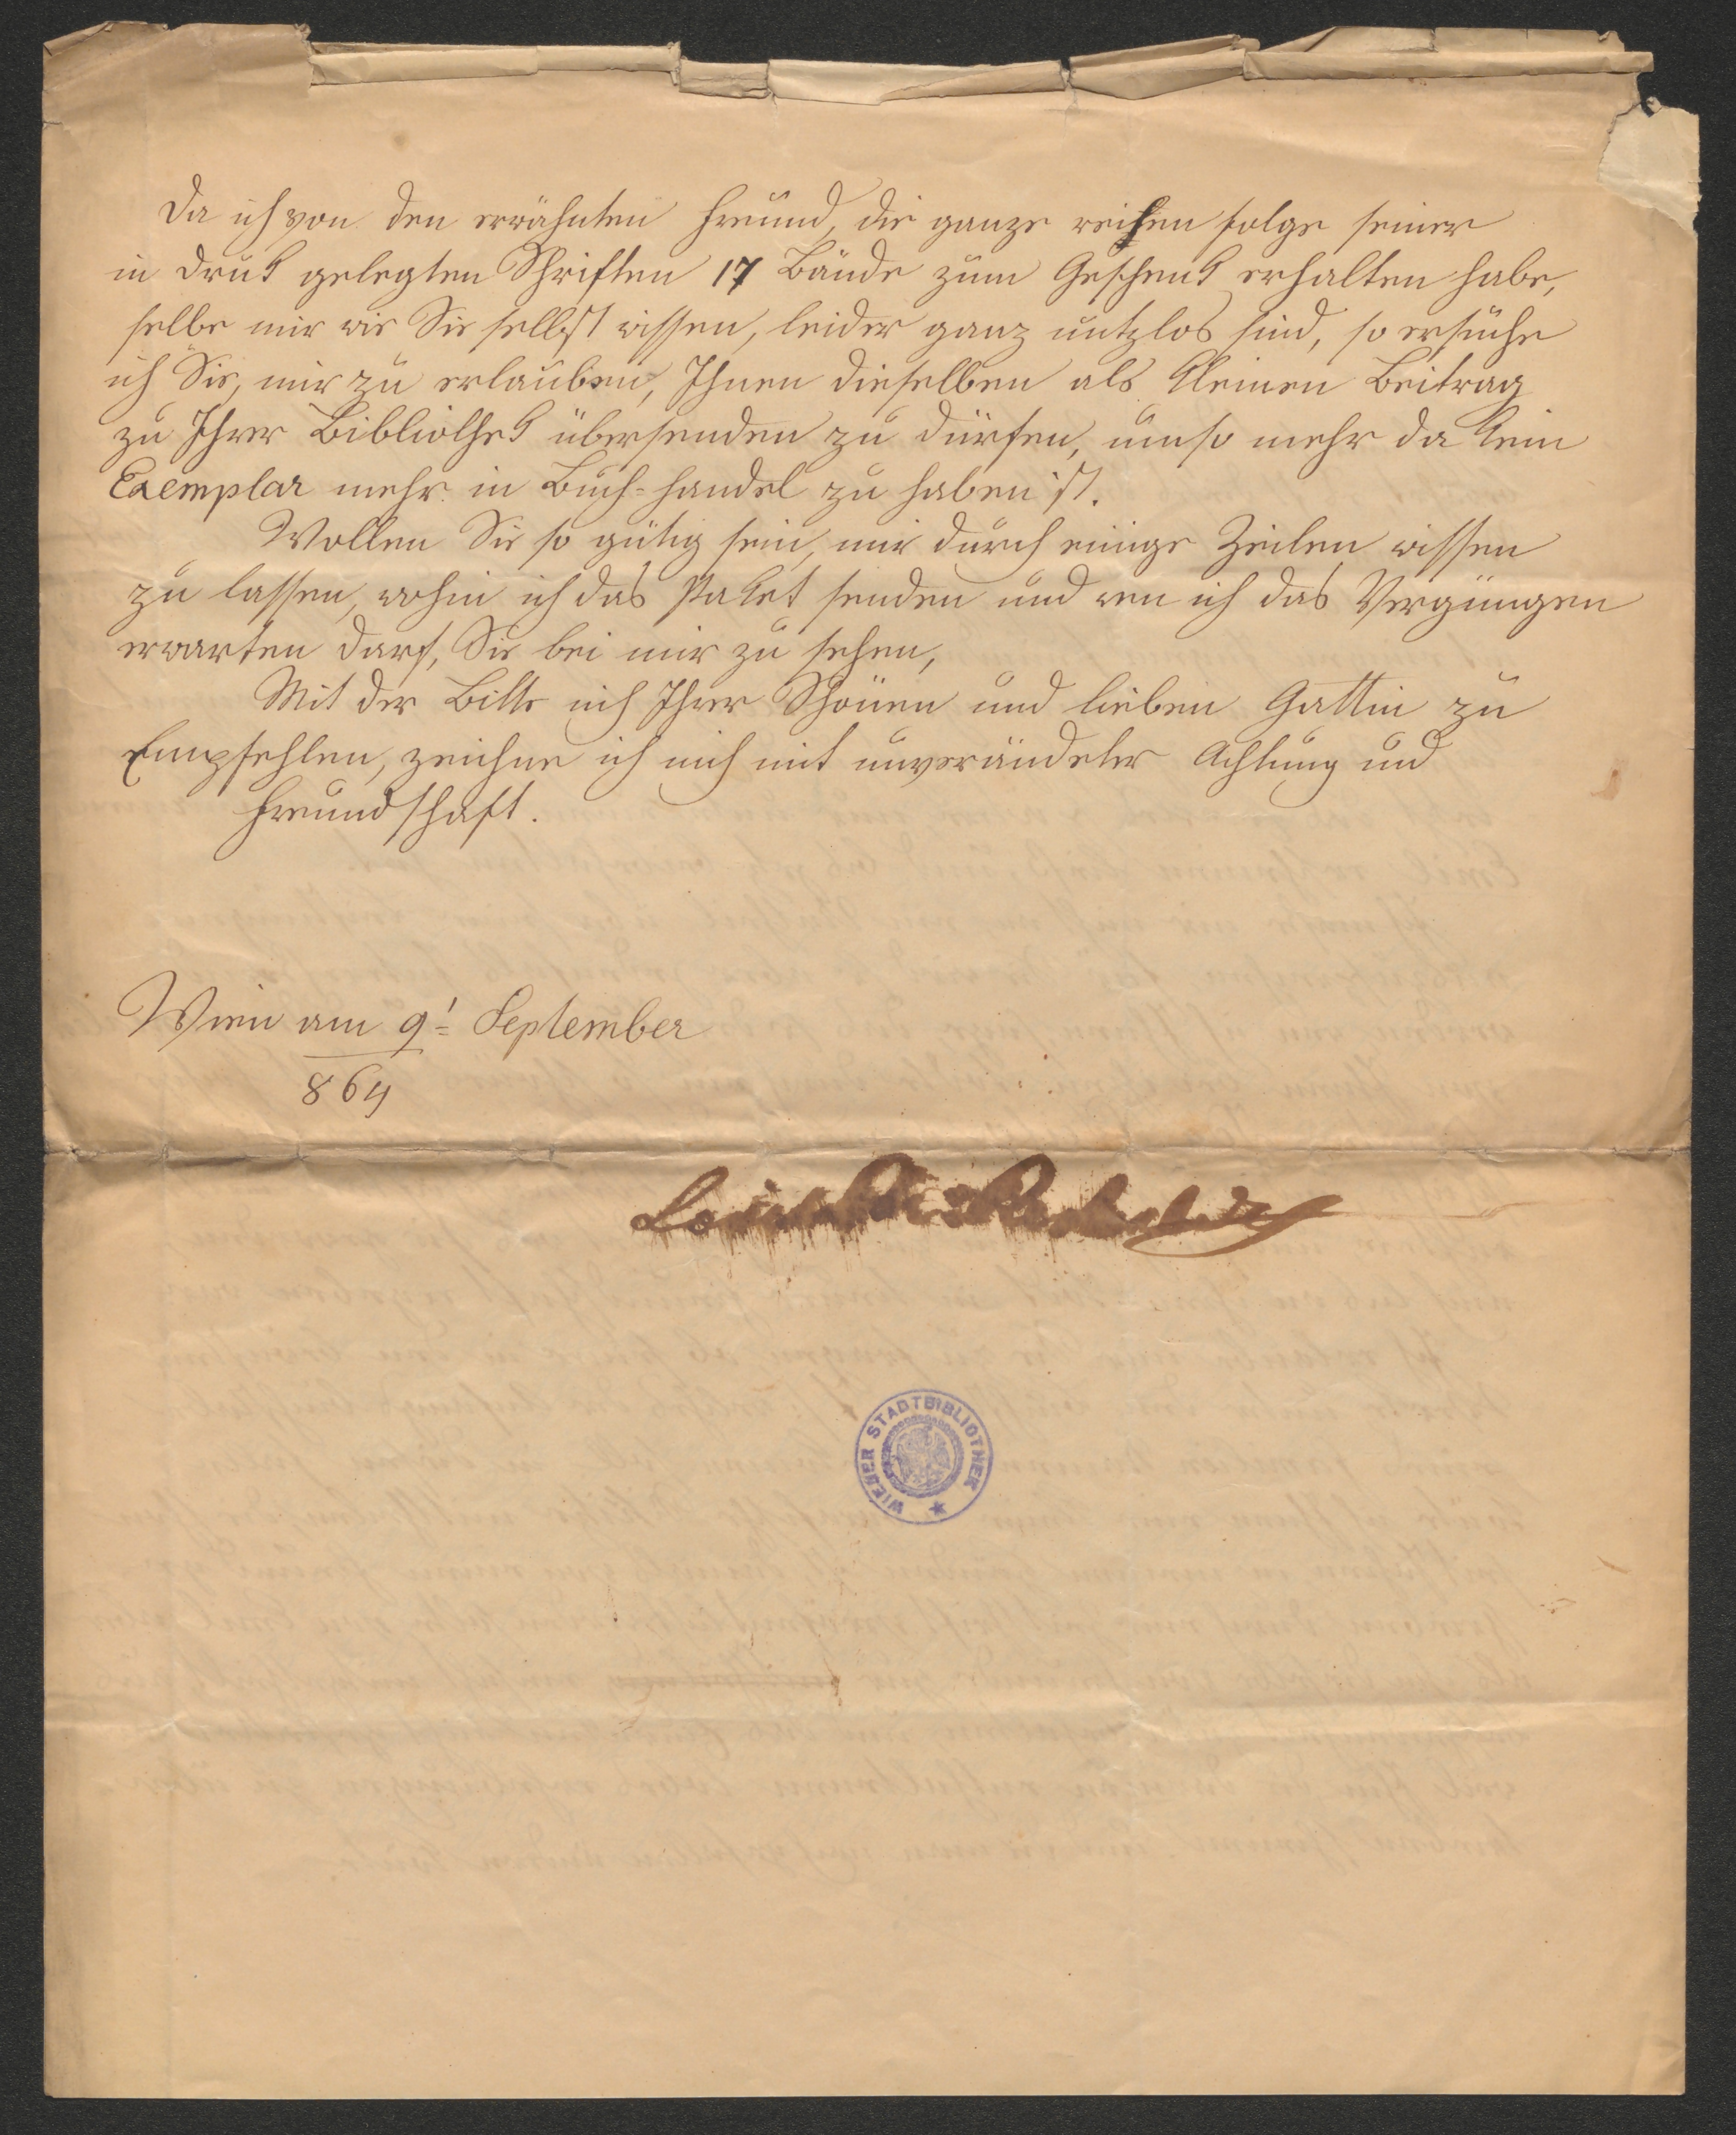 Da ich von den erwähnten Freund, die ganze reihen folge seiner
in Druk gelegten Schriften 17 Bände zum Geschenk erhalten habe,
selbe mir wie Sie selbst wissen, leider ganz nutzlos sind, so ersuche
ich Sie, mir zu erlauben, Ihnen dieselben als kleinen Beitrag
zu Ihrer Bibliothek übersenden zu dürfen, umso mehr da kein
Exemplar mehr in Buch-handel zu haben ist.
Wollen Sie so gütig sein, mir durch einige Zeilen wissen
zu lassen, wohin ich das Paket senden und wen ich das Vergnügen
erwarten darf, Sie bei mir zu sehen,
Mit der Bitte mich Ihrer Schönen und lieben Gattin zu
Empfehlen, zeichne ich mich mit unverändeter Achtung und
Freundschaft.
Wien am 9t September
864
WIENER STADTBIBLIOTHEK